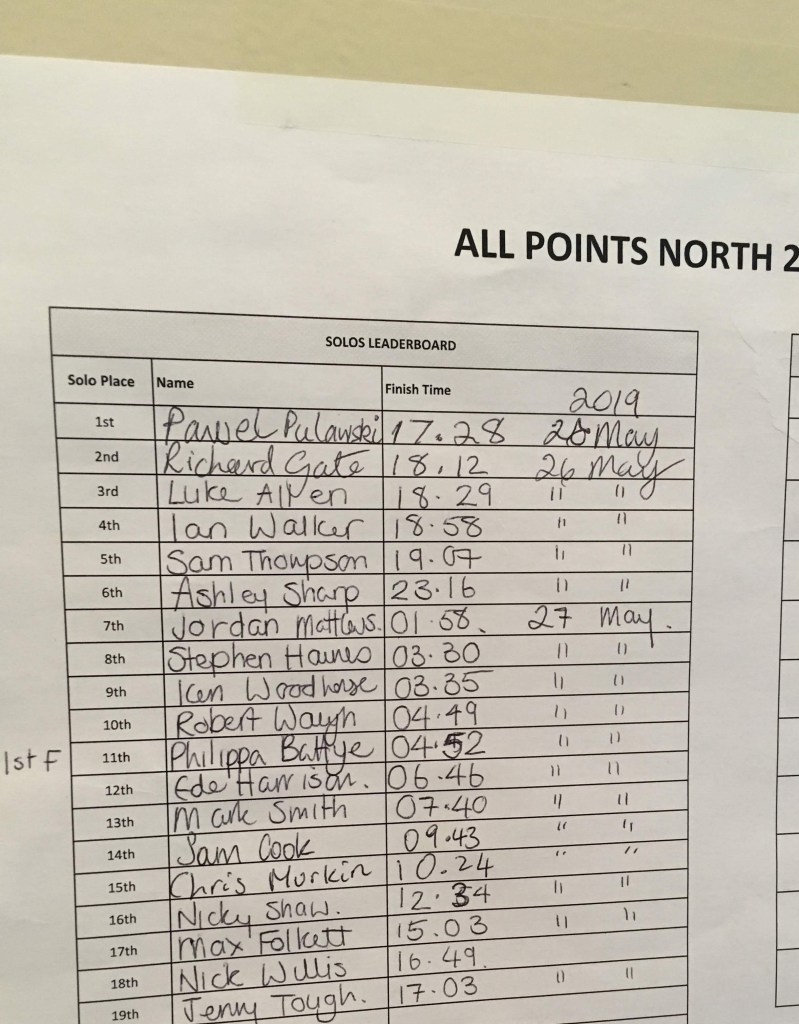 ALL POINTS NORTH 2
SOLOS LEADERBOARD
Solo Place Name Finish Time 2019
1st Pawel Pulawski 17.28 26 May
2nd Richard Gate 18.12 26 May
3rd Luke Allen 18.29 " "
4th Ian Walker 18.58 " "
5th Sam Thompson 19.07 " "
6th Ashley Sharp 23.16 " "
7th Jordan Matthews. 01.58. 27 May.
8th Stephen Haines 03.30 " "
9th Ken Woodhouse 03.35 " "
10th Robert Waugh 04.49 " "
1st F 11th Philippa Battye 04.52 " "
12th Ede Harrison. 06.46 " "
13th Mark Smith 07.40 " "
14th Sam Cook 09.43 " "
15th Chris Murkin 10.24 " "
16th Nicky Shaw. 12.34 " "
17th Max Folkett 15.03 " "
18th Nick Willis 16.49.
19th Jenny Tough. 17.03 " "